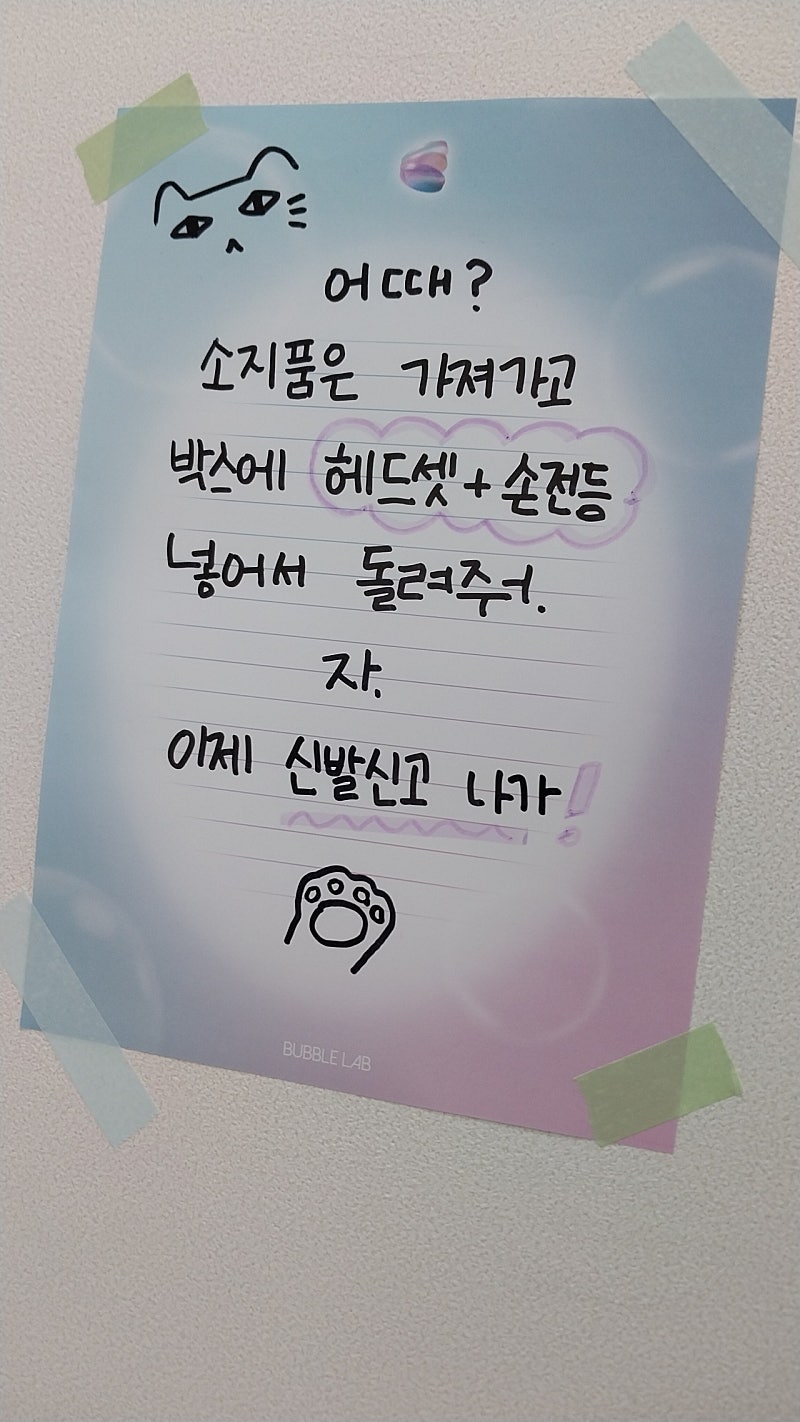 어때?
소지품은 가져가고
박스에 헤드셋 + 손전등
넣어서 돌려주어.
자.
이제 신발신고 나가!
BUBBLE LAB